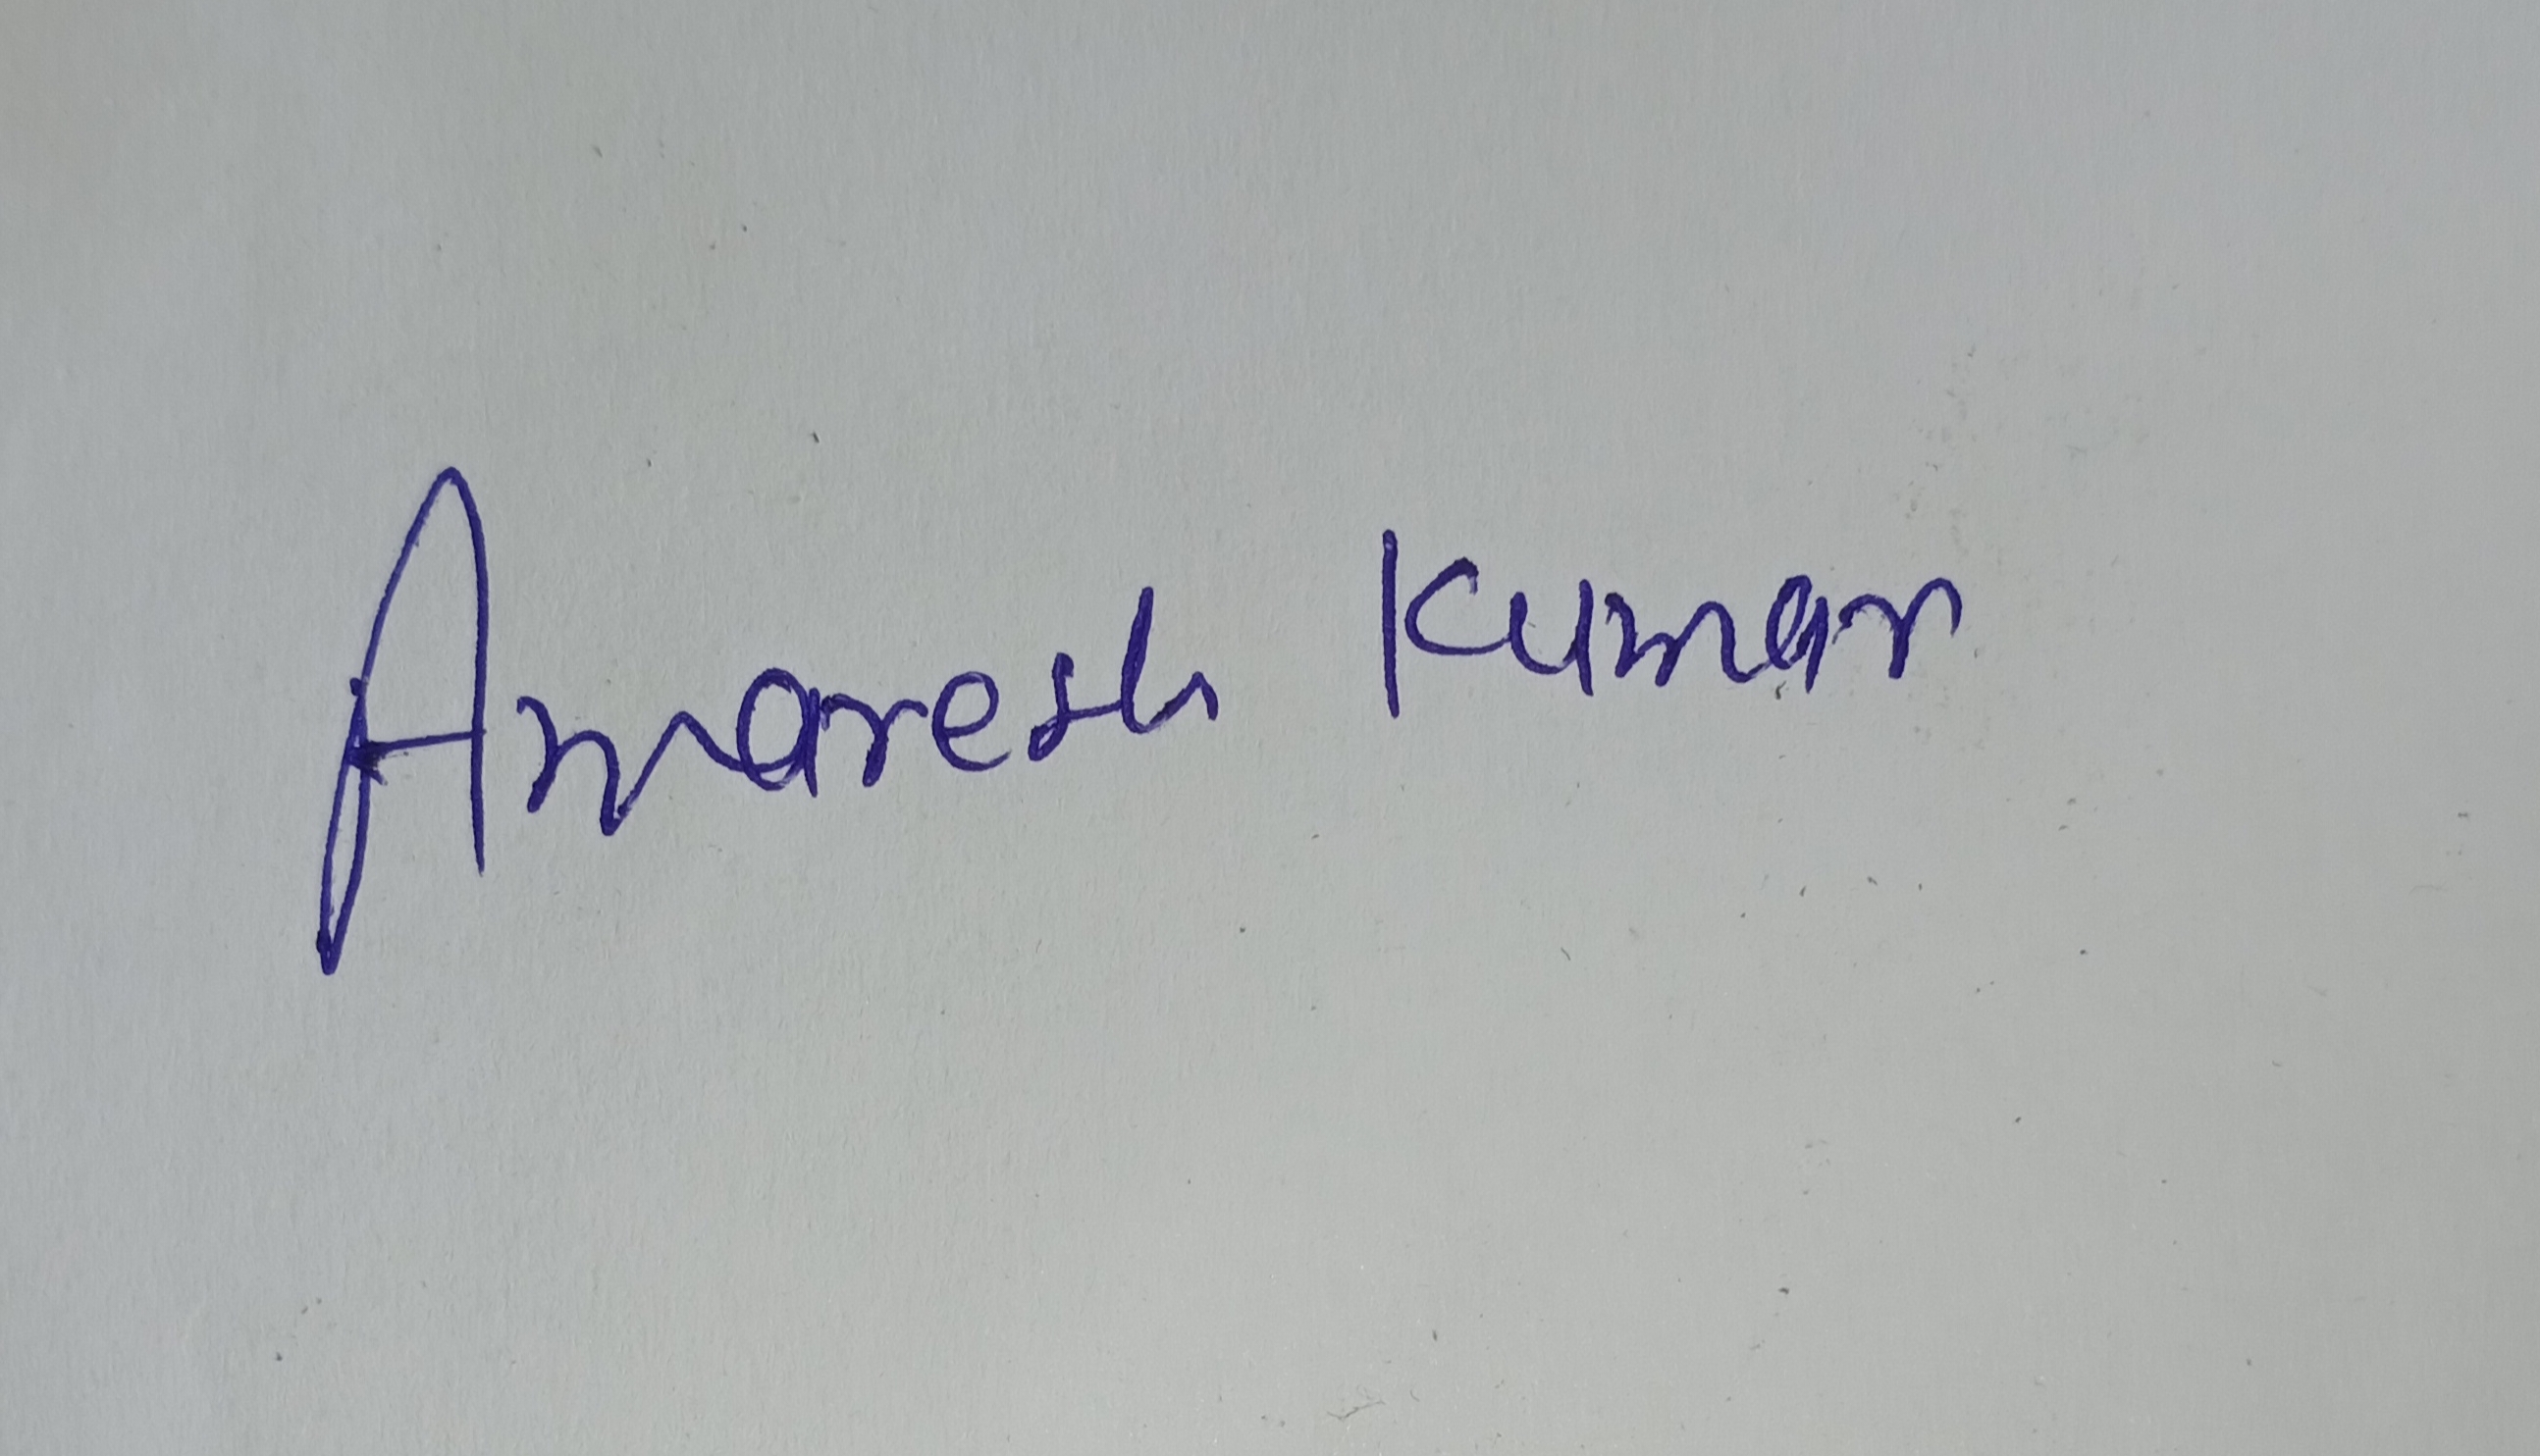 Amaresh Kumar